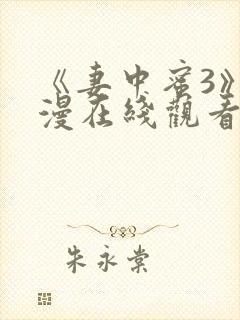 《妻中蜜3》
漫在綫觀看
朱永棠